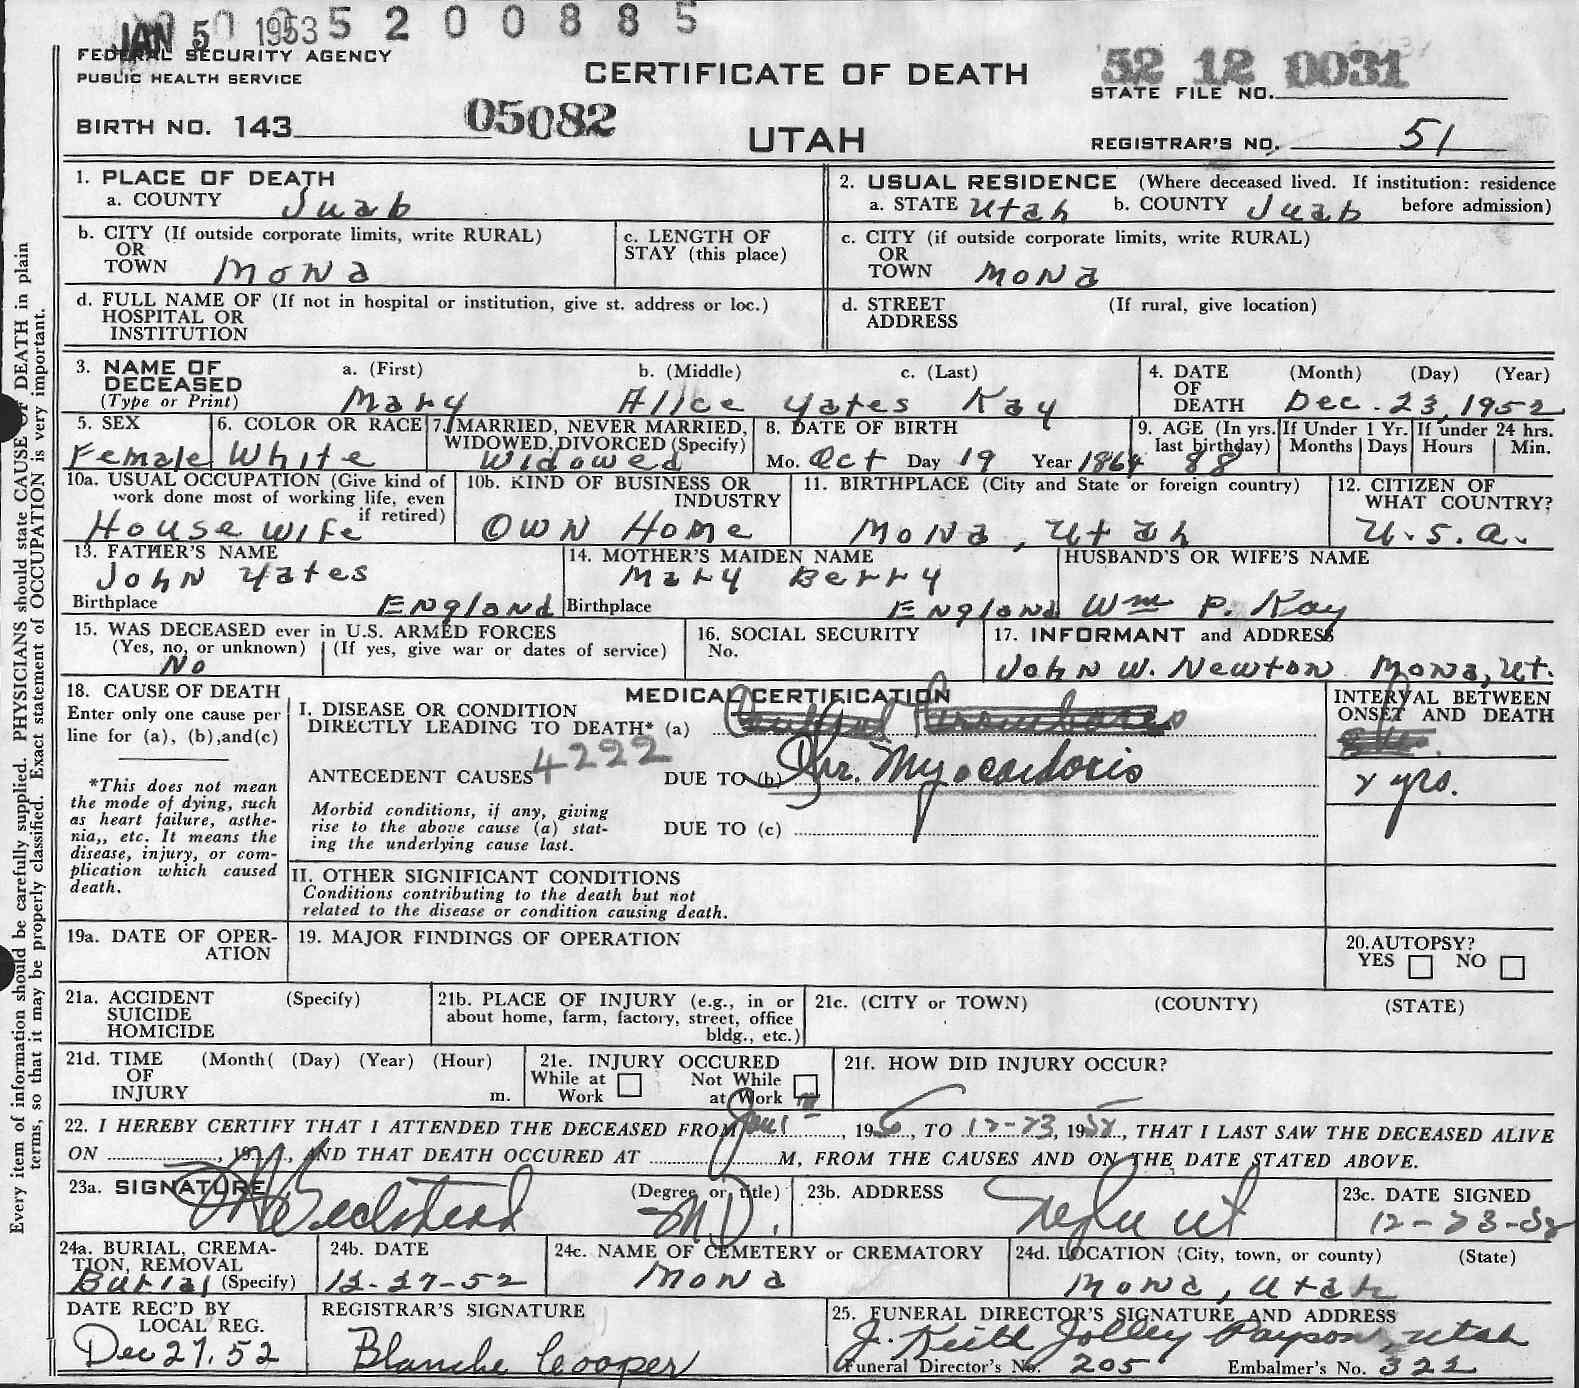 JAN 5 1953 5 2 0 0 8 8 5
FEDERAL SECURITY AGENCY
PUBLIC HEALTH SERVICE
CERTIFICATE OF DEATH
52 12 0031
STATE FILE NO.
BIRTH NO. 143 05082
UTAH
REGISTRAR'S NO. 51
1. PLACE OF DEATH
a. COUNTY Juab
2. USUAL RESIDENCE (Where deceased lived. If institution: residence before admission)
a. STATE Utah b. COUNTY Juab
b. CITY (If outside corporate limits, write RURAL)
OR
TOWN Mona
c. LENGTH OF
STAY (this place)
c. CITY (if outside corporate limits, write RURAL)
OR
TOWN Mona
d. FULL NAME OF (If not in hospital or institution, give st. address or loc.)
HOSPITAL OR
INSTITUTION
d. STREET (If rural, give location)
ADDRESS
3. NAME OF DECEASED
(Type or Print)
a. (First) b. (Middle) c. (Last)
Mary Alice Yates Kay
4. DATE OF DEATH (Month) (Day) (Year)
Dec. 23, 1952
5. SEX
Female
6. COLOR OR RACE
White
7. MARRIED, NEVER MARRIED,
WIDOWED, DIVORCED (Specify)
Widowed
8. DATE OF BIRTH
Mo. Oct Day 19 Year 1864
9. AGE (In yrs. last birthday) 88
If Under 1 Yr. Months Days
If under 24 hrs. Hours Min.
10a. USUAL OCCUPATION (Give kind of
work done most of working life, even
if retired)
House wife
10b. KIND OF BUSINESS OR
INDUSTRY
Own Home
11. BIRTHPLACE (City and State or foreign country)
Mona, Utah
12. CITIZEN OF
WHAT COUNTRY?
U.S.A.
13. FATHER'S NAME
John Yates
Birthplace England
14. MOTHER'S MAIDEN NAME
Mary Berry
Birthplace England
HUSBAND'S OR WIFE'S NAME
Wm P. Kay
15. WAS DECEASED ever in U.S. ARMED FORCES
(Yes, no, or unknown) (If yes, give war or dates of service)
No
16. SOCIAL SECURITY
No.
17. INFORMANT and ADDRESS
John W. Newton Mona, Ut.
18. CAUSE OF DEATH
Enter only one cause per
line for (a), (b), and (c)
*This does not mean
the mode of dying, such
as heart failure, asthe-
nia,, etc. It means the
disease, injury, or com-
plication which caused
death.
MEDICAL CERTIFICATION
I. DISEASE OR CONDITION
DIRECTLY LEADING TO DEATH* (a)
4222
ANTECEDENT CAUSES DUE TO (b) Chr. Myocardosis
Morbid conditions, if any, giving
rise to the above cause (a) stat-
ing the underlying cause last.
DUE TO (c)
INTERVAL BETWEEN
ONSET AND DEATH
yrs.
II. OTHER SIGNIFICANT CONDITIONS
Conditions contributing to the death but not
related to the disease or condition causing death.
19a. DATE OF OPER-
ATION
19. MAJOR FINDINGS OF OPERATION
20. AUTOPSY?
YES NO
21a. ACCIDENT (Specify)
SUICIDE
HOMICIDE
21b. PLACE OF INJURY (e.g., in or
about home, farm, factory, street, office
bldg., etc.)
21c. (CITY or TOWN) (COUNTY) (STATE)
21d. TIME (Month( (Day) (Year) (Hour)
OF
INJURY m.
21e. INJURY OCCURED
While at Work Not While at Work
21f. HOW DID INJURY OCCUR?
22. I HEREBY CERTIFY THAT I ATTENDED THE DECEASED FROM , 195 , TO 12-23, 1952, THAT I LAST SAW THE DECEASED ALIVE
ON , 19 , AND THAT DEATH OCCURED AT M, FROM THE CAUSES AND ON THE DATE STATED ABOVE.
23a. SIGNATURE (Degree or title)
Beckstead M.D.
23b. ADDRESS
Nephi Ut
23c. DATE SIGNED
12-23-52
24a. BURIAL, CREMA-
TION, REMOVAL
Burial (Specify)
24b. DATE
12-27-52
24c. NAME OF CEMETERY or CREMATORY
Mona
24d. LOCATION (City, town, or county) (State)
Mona, Utah
DATE REC'D BY
LOCAL REG.
Dec 27, 52
REGISTRAR'S SIGNATURE
Blanche Cooper
25. FUNERAL DIRECTOR'S SIGNATURE AND ADDRESS
J. Keith Jolley Payson, Utah
Funeral Director's No. 205 Embalmer's No. 322
Every item of information should be carefully supplied. PHYSICIANS should state CAUSE OF DEATH in plain
terms, so that it may be properly classified. Exact statement of OCCUPATION is very important.